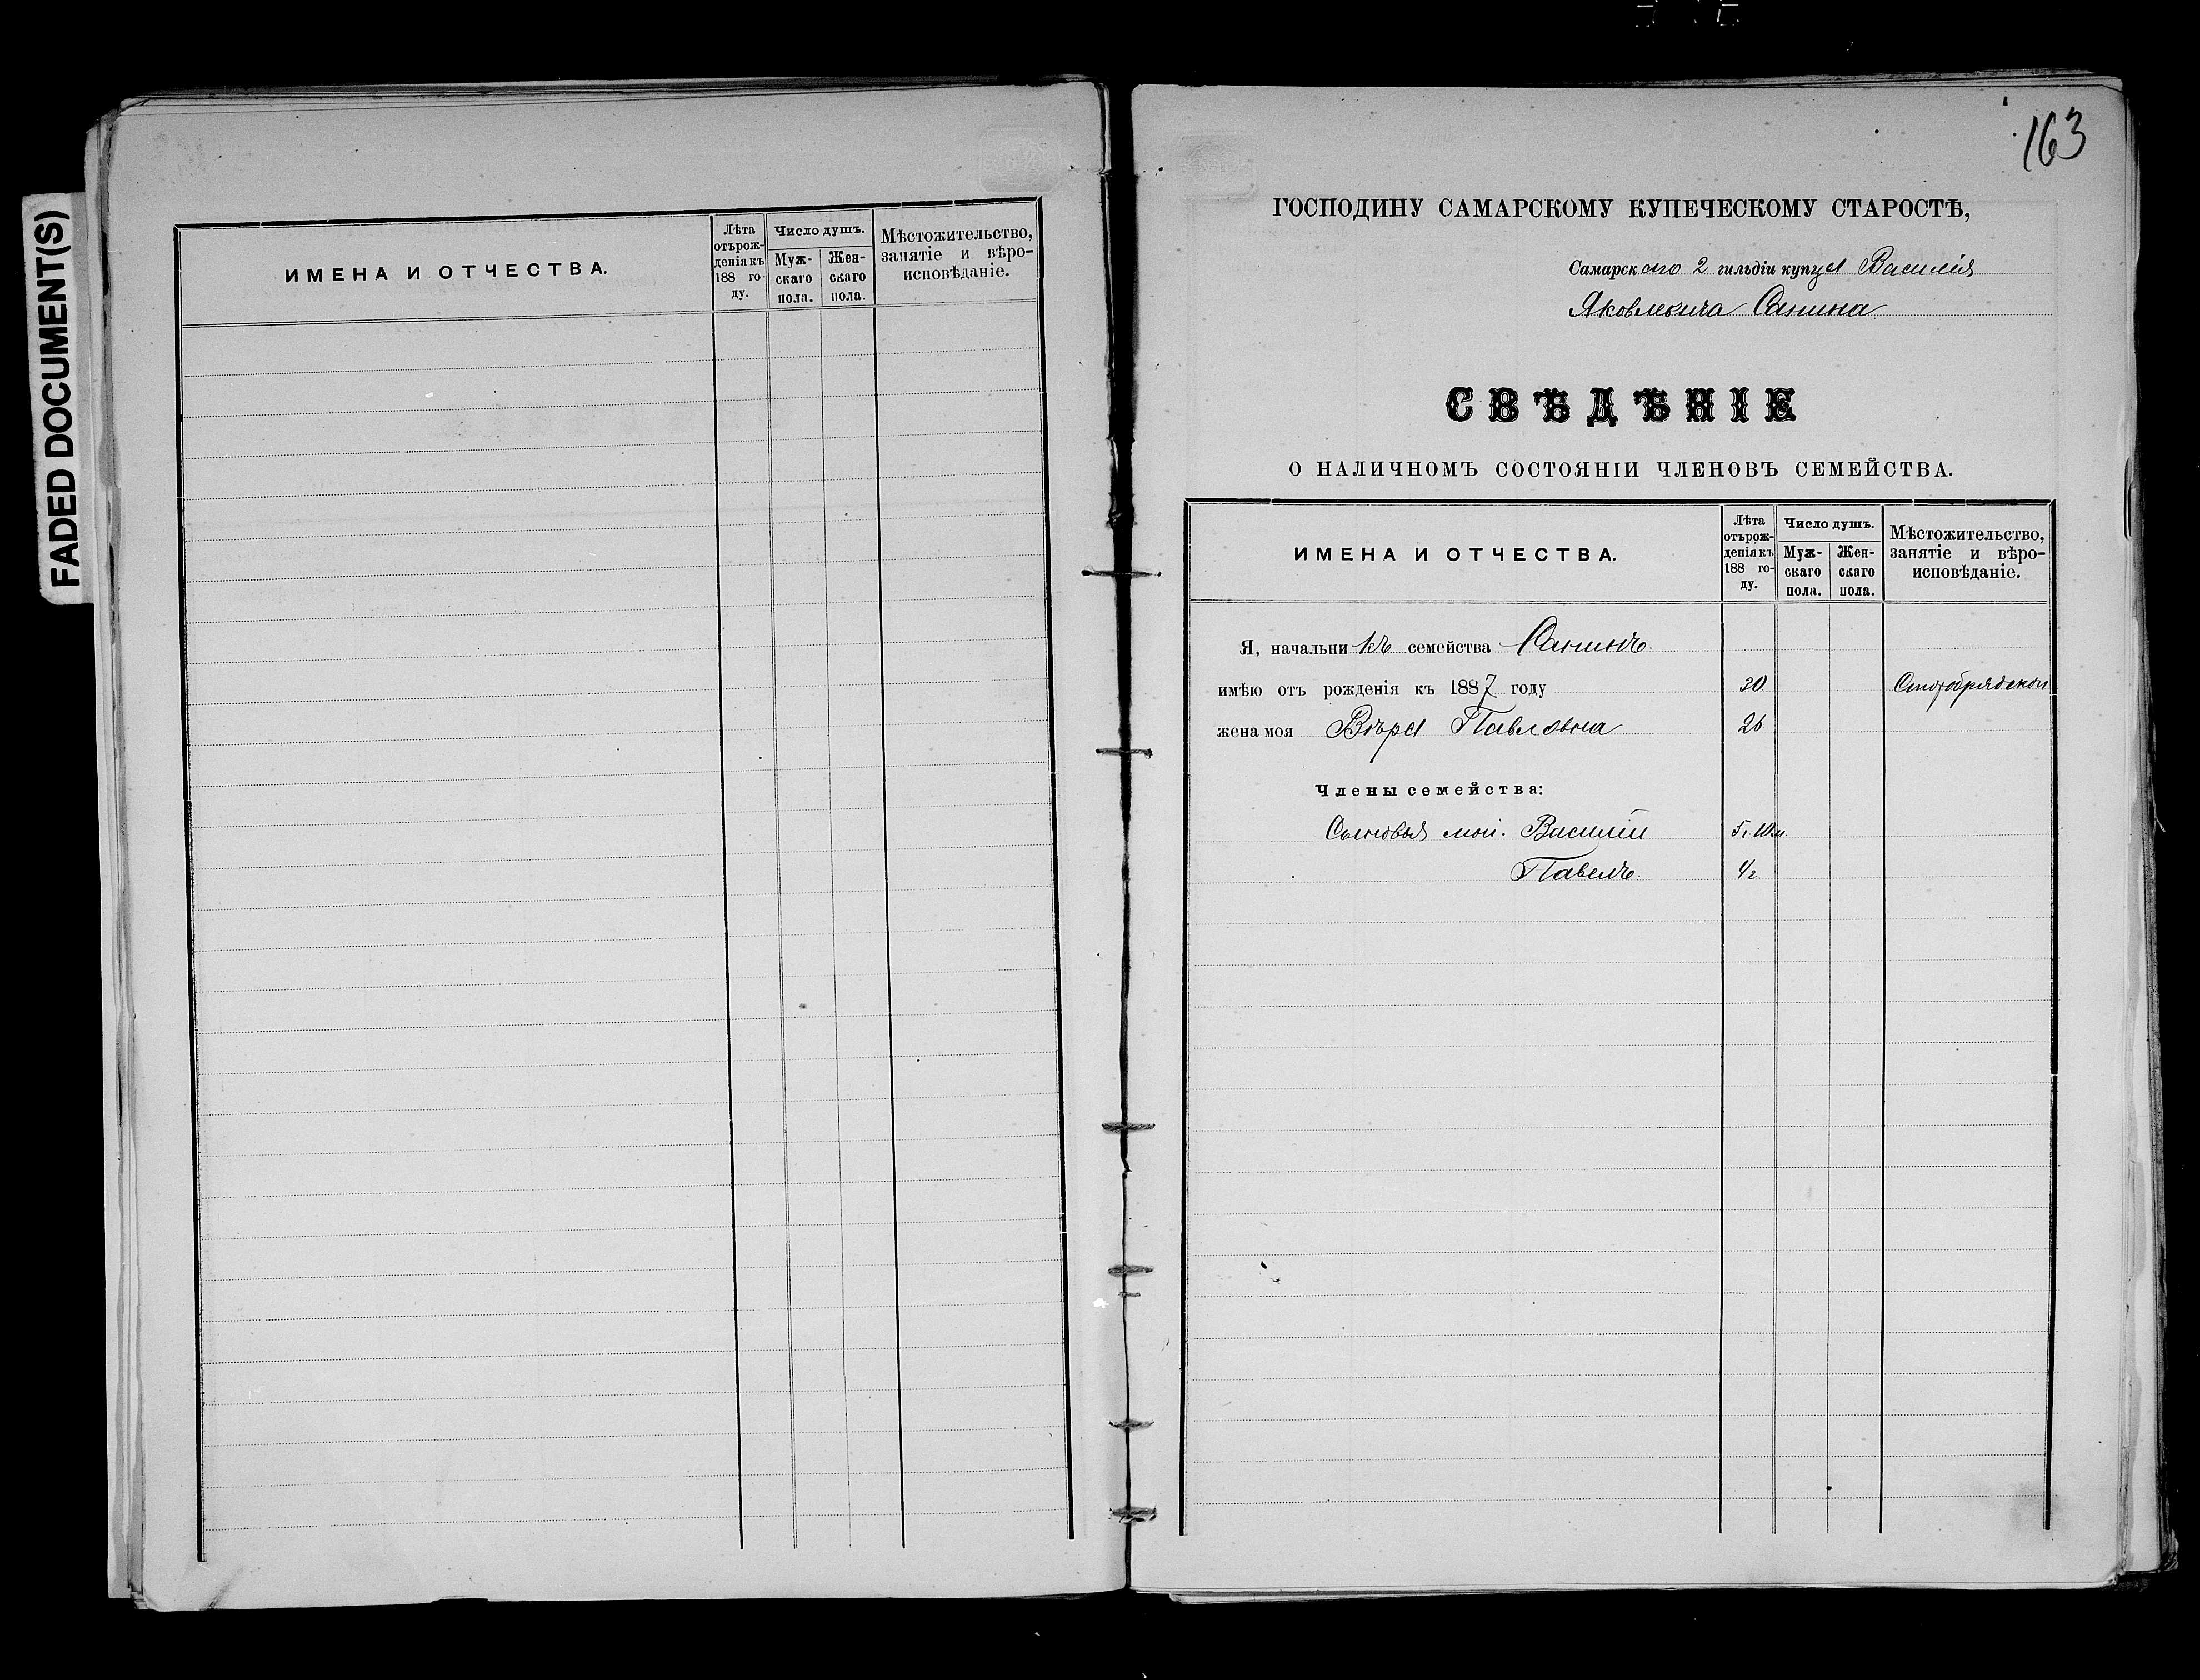 FADED DOCUMENT(S)
ИМЕНА И ОТЧЕСТВА.
Лѣта отърож-денія къ 188 го-ду.
Число душъ.
Муж-скаго пола.
Жен-скаго пола.
Мѣстожительство, занятіе и вѣро-исповѣданіе.
163
ГОСПОДИНУ САМАРСКОМУ КУПЕЧЕСКОМУ СТАРОСТѢ,
Самарскаго 2 гильдіи купца Василія
Яковлевича Санина
СВѢДѢНІЕ
О НАЛИЧНОМЪ СОСТОЯНІИ ЧЛЕНОВЪ СЕМЕЙСТВА.
ИМЕНА И ОТЧЕСТВА.
Лѣта отърож-денія къ 188 го-ду.
Число душъ.
Муж-скаго пола.
Жен-скаго пола.
Мѣстожительство, занятіе и вѣро-исповѣданіе.
Я, начальникъ семейства Санинъ
имѣю отъ рожденія къ 1887 году 30
жена моя Вѣра Павловна 26
Члены семейства:
Сыновья мои. Василій 5 г. 10 м
Павелъ. 4 г